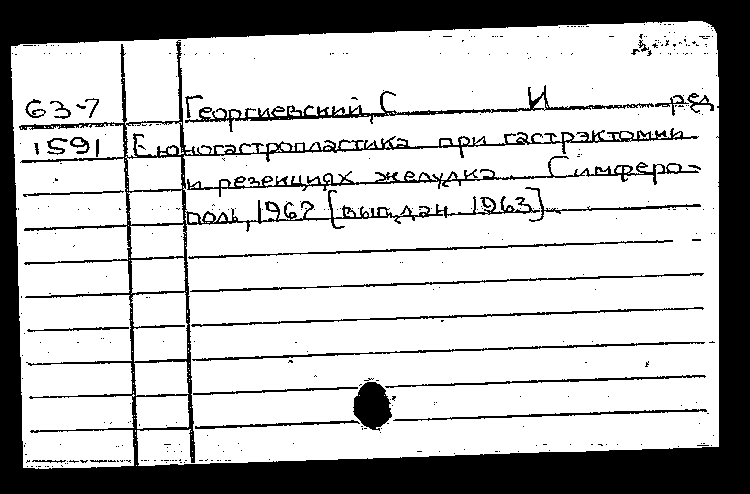 63-7 Георгиевский, С И ред
1591 Еюногастропластика при гастрэктомии
и резекциях желудка Симферо-
поль, 1962 [вып.дан 1963].